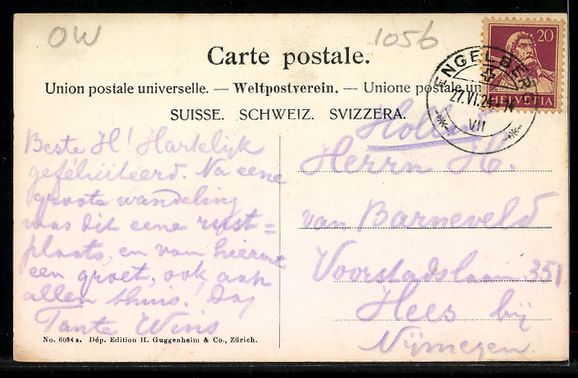 OW
1056
Carte postale.
Union postale universelle. — Weltpostverein. — Unione postale un
SUISSE. SCHWEIZ. SVIZZERA.
20
HELVETIA
ENGELBER
27.VI.2
VII
Beste H! Hartelijk
gefeliciteerd. Na eene
groote wandeling
was dit eene rust=
plaats, en van hieruit
een groet, ook aan
allen thuis! Dag
Tante Wins
Holland
Herrn H.
van Barneveld
Voorstadslaan 351
Hees bij
Nijmegen.
No. 6034 a. Dép. Edition H. Guggenheim & Co., Zürich.